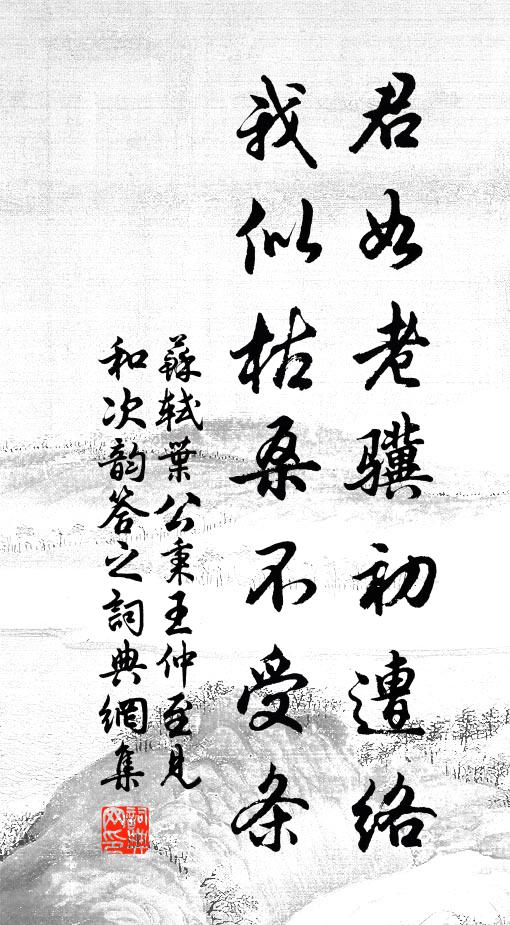 君如老骥初遭络
我似枯桑不受条
蘇轼葉公秉王仲至見
和次韵答之詞典網集